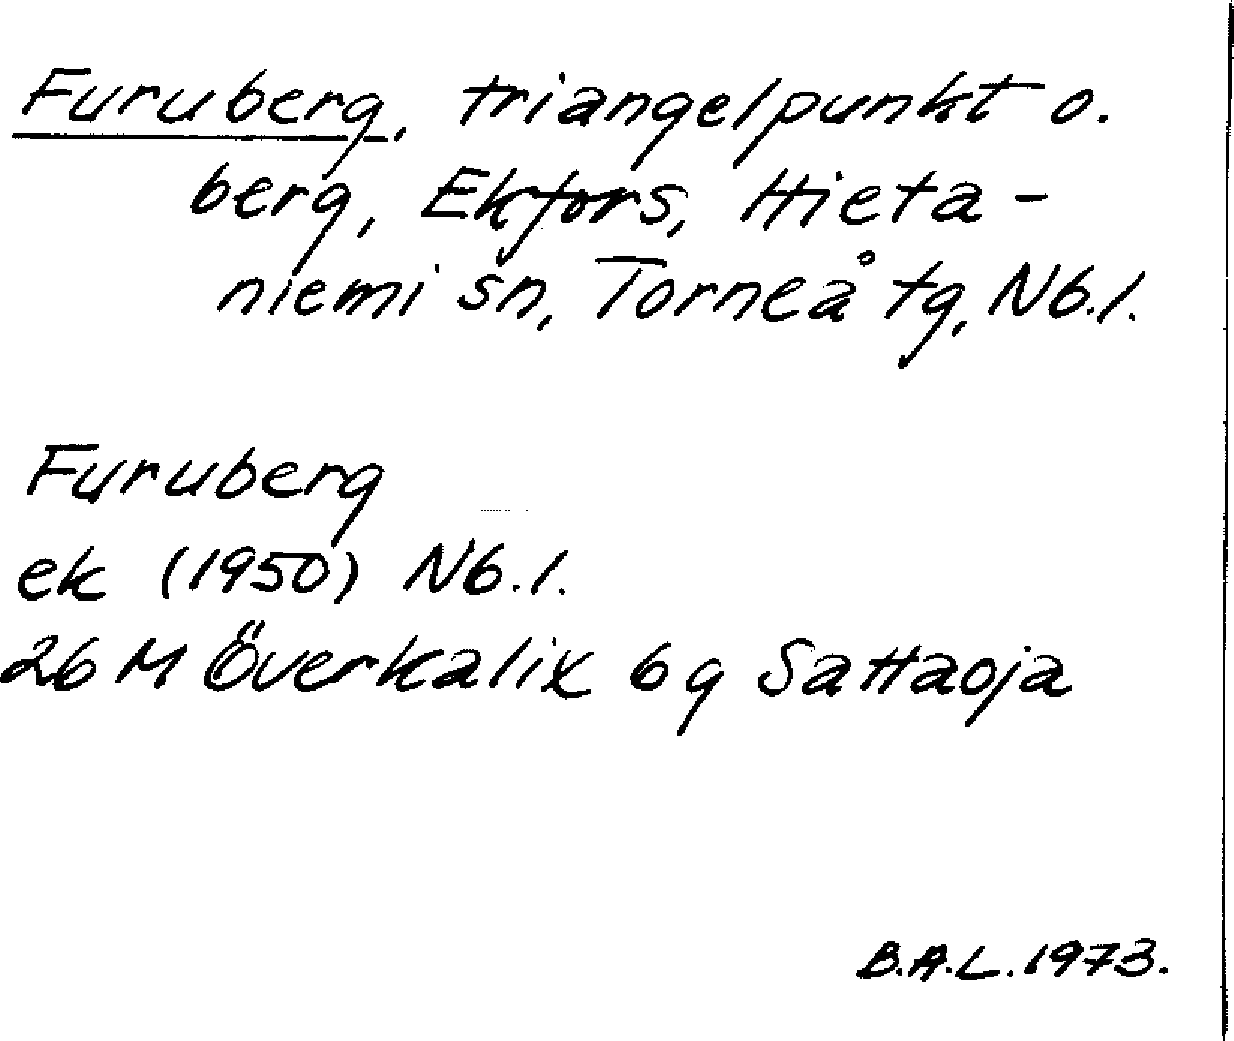 Furuberg, triangelpunkt o.
berg, Ekfors, Hieta-
niemi sn, Torneå tg, Nb.l.
Furuberg
ek (1950) Nb.l.
26 M Överkalix 6 g Sattaoja
B.A.L. 1973.